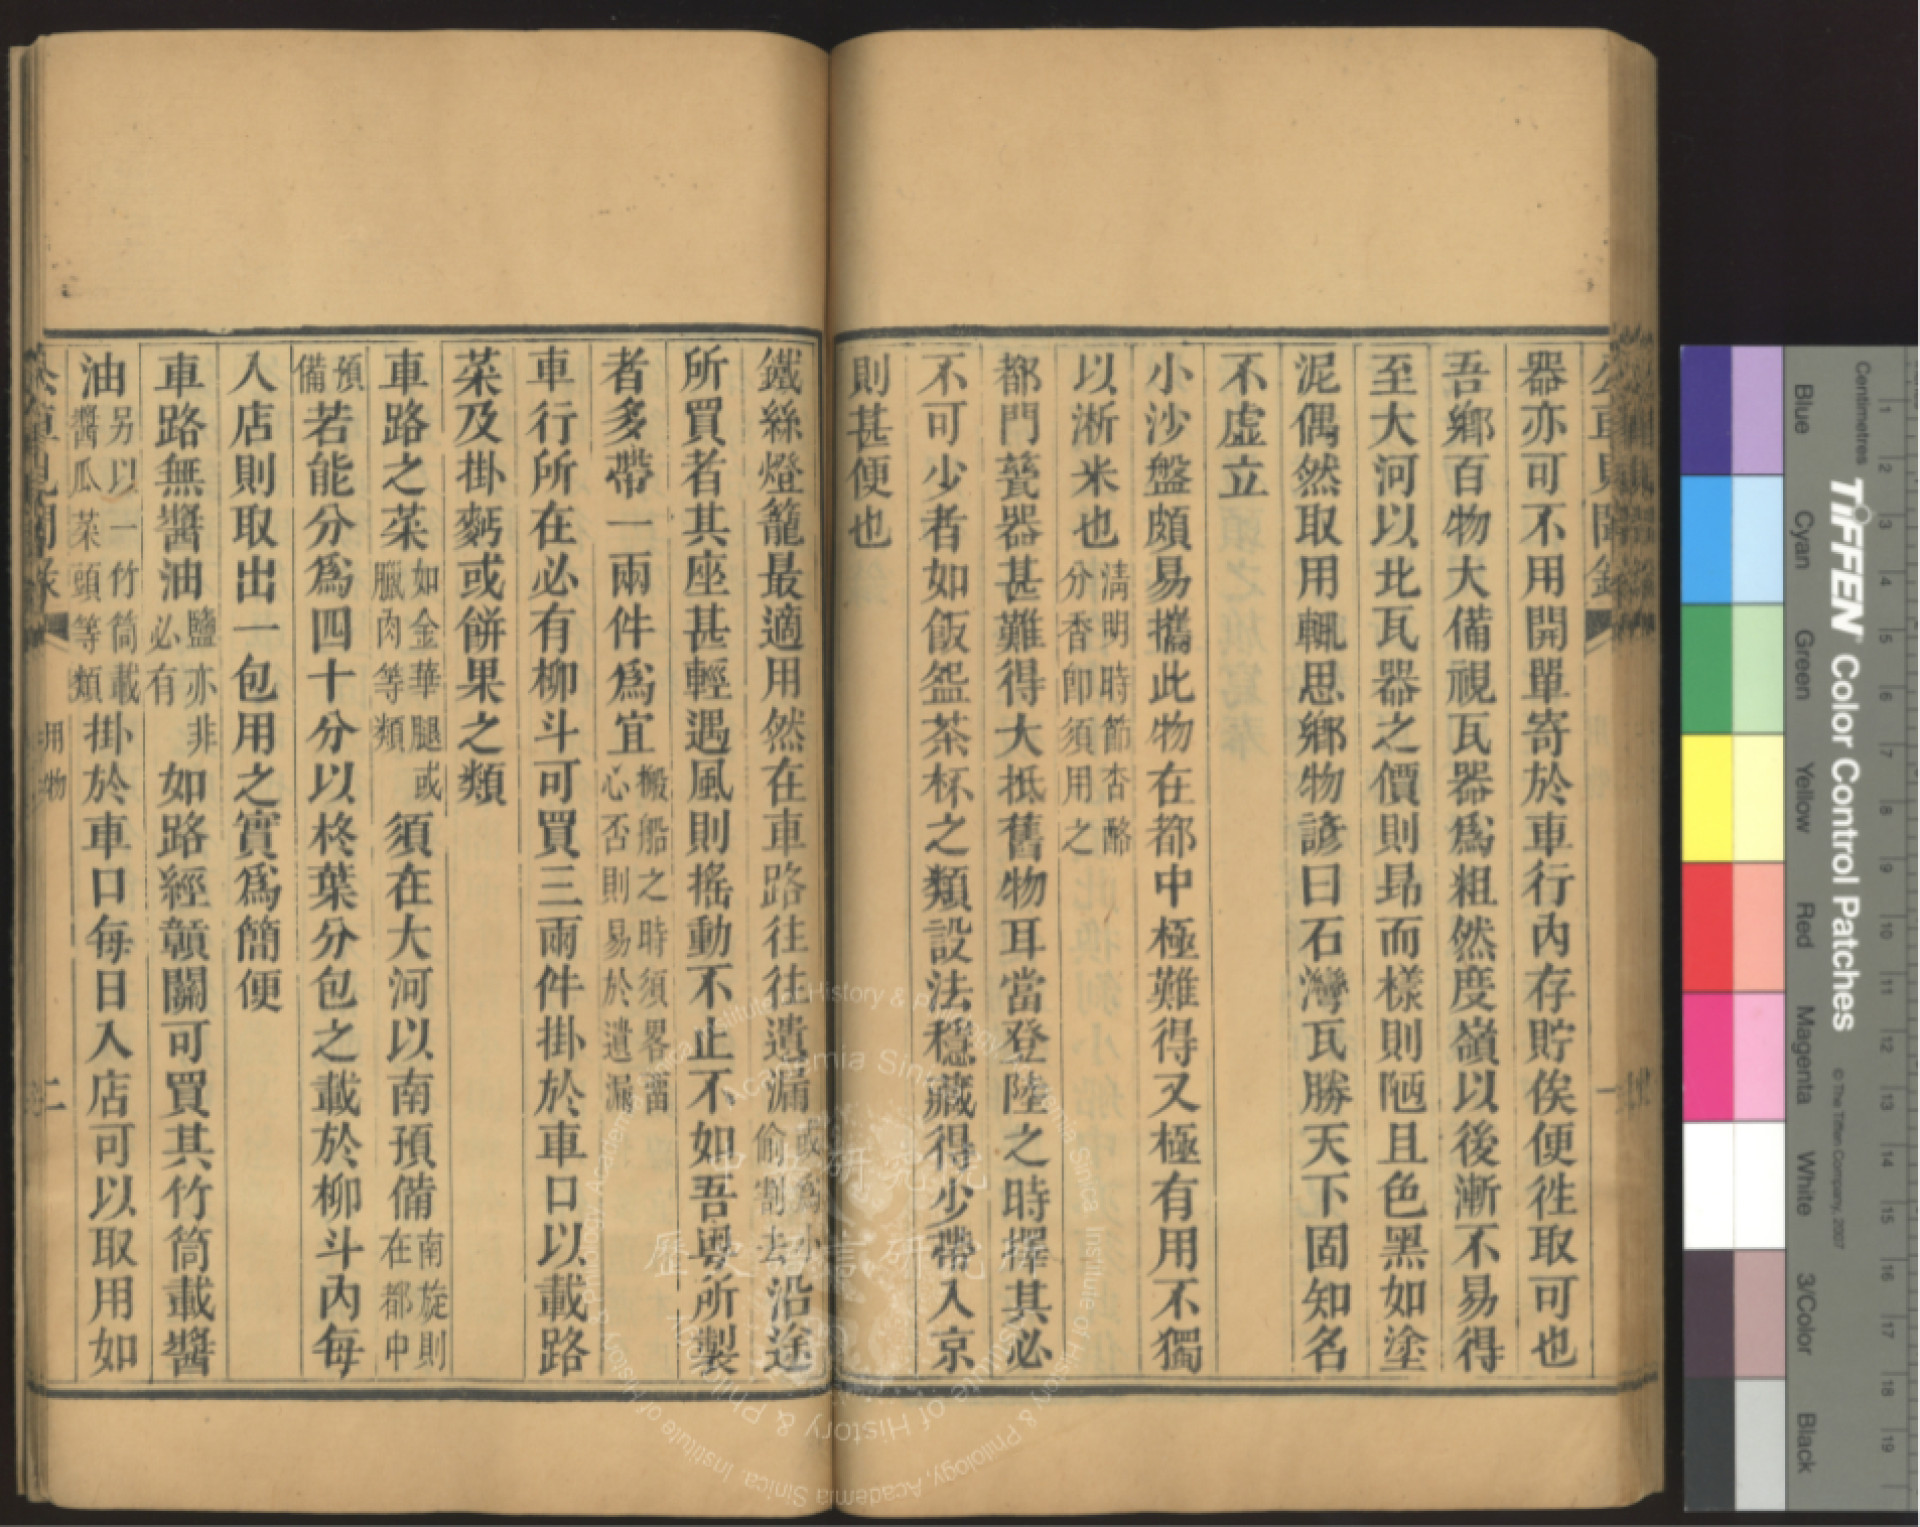 公車見聞錄
一
器亦可不用開單寄於車行內存貯俟便徃取可也
吾鄉百物大備視瓦器爲粗然度嶺以後漸不易得
至大河以北瓦器之價則昻而樣則陋且色黑如塗
泥偶然取用輒思鄉物諺曰石灣瓦勝天下固知名
不虛立
小沙盤頗易攜此物在都中極難得又極有用不獨
以淅米也淸明時節杏酪分香卽須用之
都門甆器甚難得大抵舊物耳當登陸之時擇其必
不可少者如飯盌茶杯之類設法穩藏得少帶入京
則甚便也
鐵絲燈籠最適用然在車路往往遺漏或爲小偷割去沿途
所買者其座甚輕遇風則搖動不止不如吾粵所製
者多帶一兩件爲宜搬船之時須畧畱心否則易於遺漏
車行所在必有柳斗可買三兩件掛於車口以載路
菜及掛麪或餅果之類
車路之菜如金華腿或臘肉等類須在大河以南預備南旋則在都中
預備若能分爲四十分以柊葉分包之載於柳斗內每
入店則取出一包用之實爲簡便
車路無醬油鹽亦非必有如路經贛關可買其竹筒載醬
油另以一竹筒載醬瓜菜頭等類掛於車口每日入店可以取用如
公車見聞錄
用物
二
中央研究院
歷史語言研究
Institute of History & Philology, Academia Sinica
Centimetres
TIFFEN Color Control Patches
© The Tiffen Company, 2007
Blue
Cyan
Green
Yellow
Red
Magenta
White
3/Color
Black
1 2 3 4 5 6 7 8 9 10 11 12 13 14 15 16 17 18 19